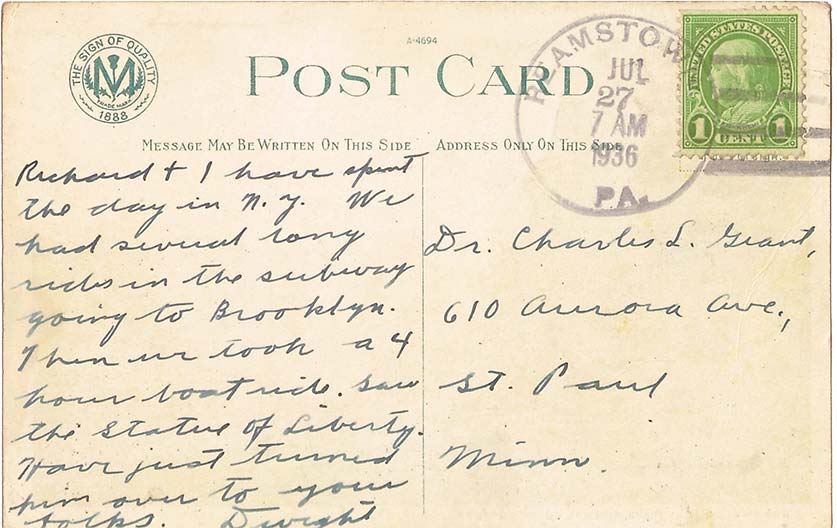 A-4694
THE SIGN OF QUALITY
M
TRADE MARK
1888
POST CARD
REAMSTOW
JUL
27
7 AM
1936
PA.
UNITED STATES POSTAGE
1 CENT 1
MESSAGE MAY BE WRITTEN ON THIS SIDE
ADDRESS ONLY ON THIS SIDE
Richard + I have spent
the day in N.Y. We
had several long
rides in the subway
going to Brooklyn.
Then we took a 4
hour boat ride. Saw
the Statue of Liberty.
Have just turned
him over to your
folks. Dwight
Dr. Charles L. Grant,
610 Aurora Ave.,
St. Paul
Minn.